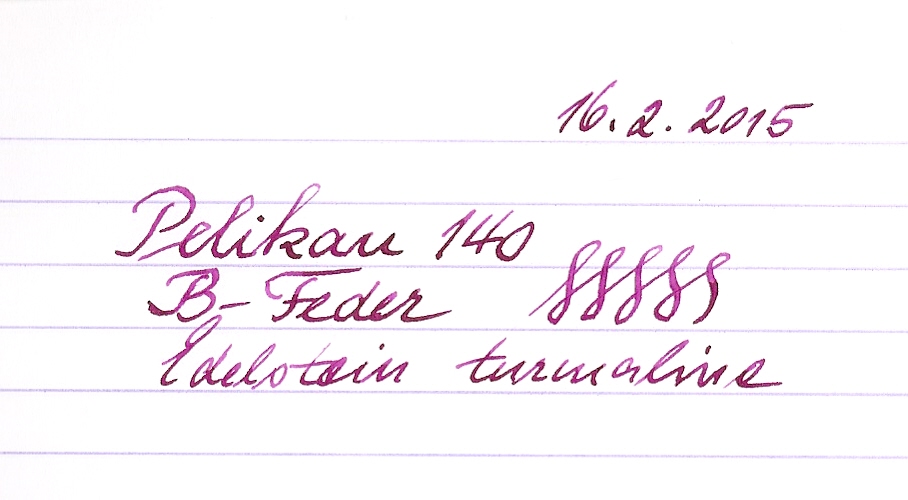 16.2.2015
Pelikan 140
B-Feder
Edelstein turmaline